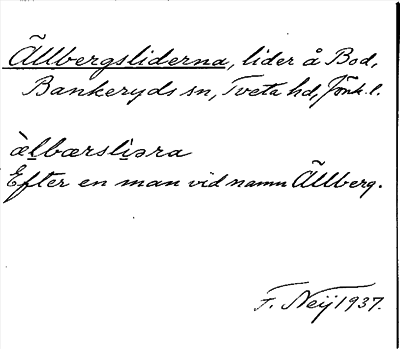 Ällbergsliderna, lider å Bod,
Bankeryds sn, Tveta hd, Jönk. l.
ä̀lbærsliəra
Efter en man vid namn Ällberg.
F. Neij 1937.